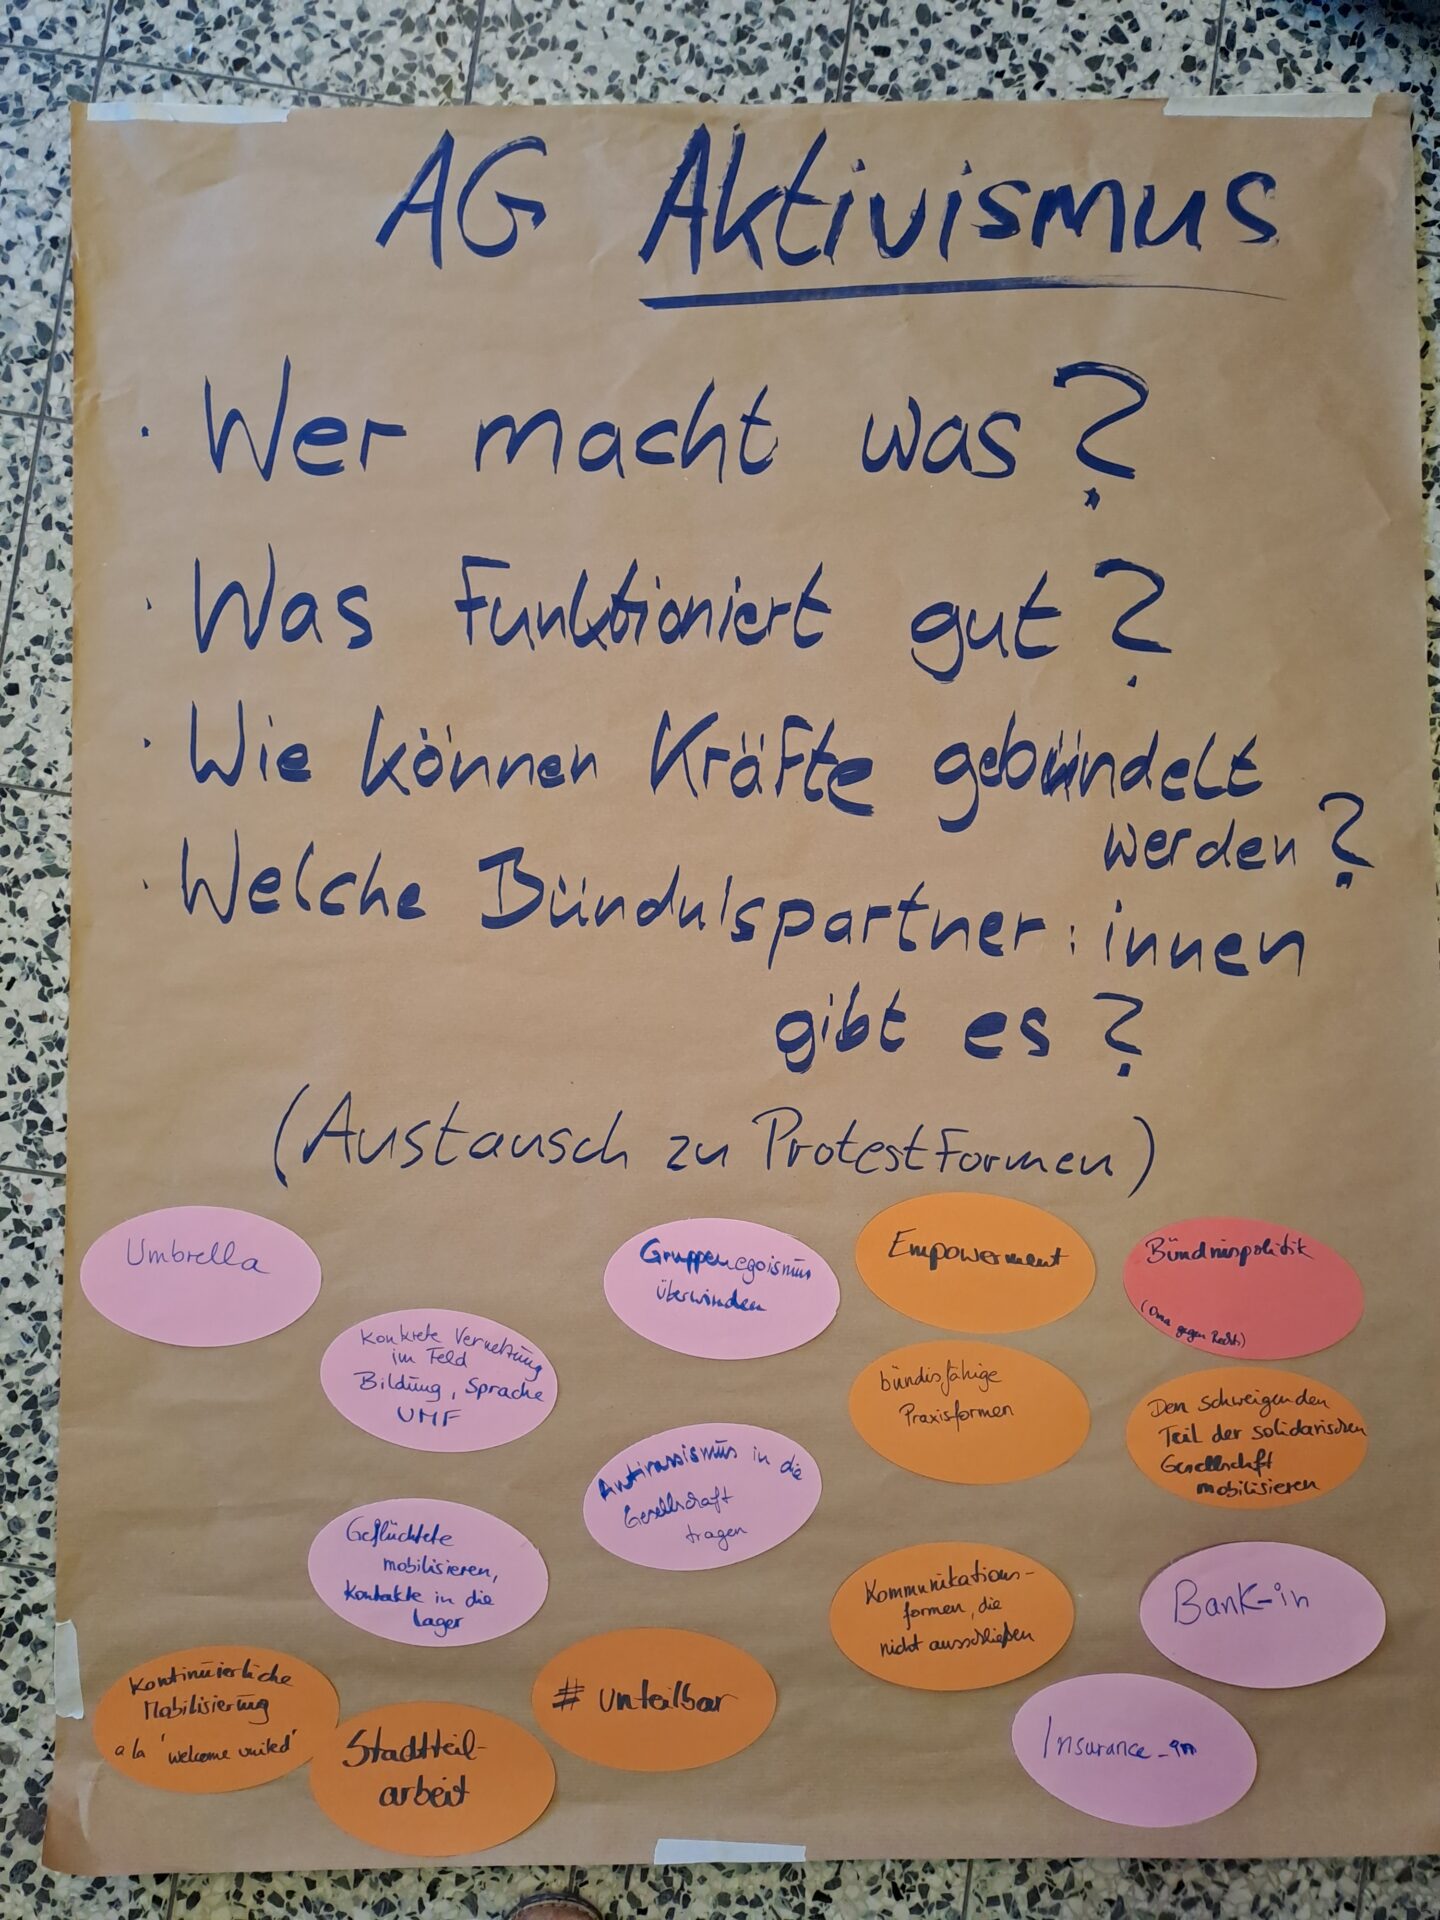 AG Aktivismus
· Wer macht was?
· Was Funktioniert gut?
· Wie können Kräfte gebündelt
werden?
· Welche Bündnispartner:innen
gibt es?
(Austausch zu Protestformen)
Umbrella
Konkrete Vernetzung
im Feld
Bildung, Sprache
UMF
Geflüchtete
mobilisieren,
Kontakte in die
Lager
Kontinuierliche
Mobilisierung
a la 'welcome united'
Stadtteil-
arbeit
Gruppenegoismus
überwinden
Antirassismus in die
Gesellschaft
tragen
# unteilbar
Empowerment
bündisfähige
Praxisformen
Kommunikations-
formen, die
nicht ausschließen
Bündnispolitik
(Oma gegen Rechts)
Den schweigenden
Teil der solidarischen
Gesellschaft
mobilisieren
Bank-in
Insurance-in